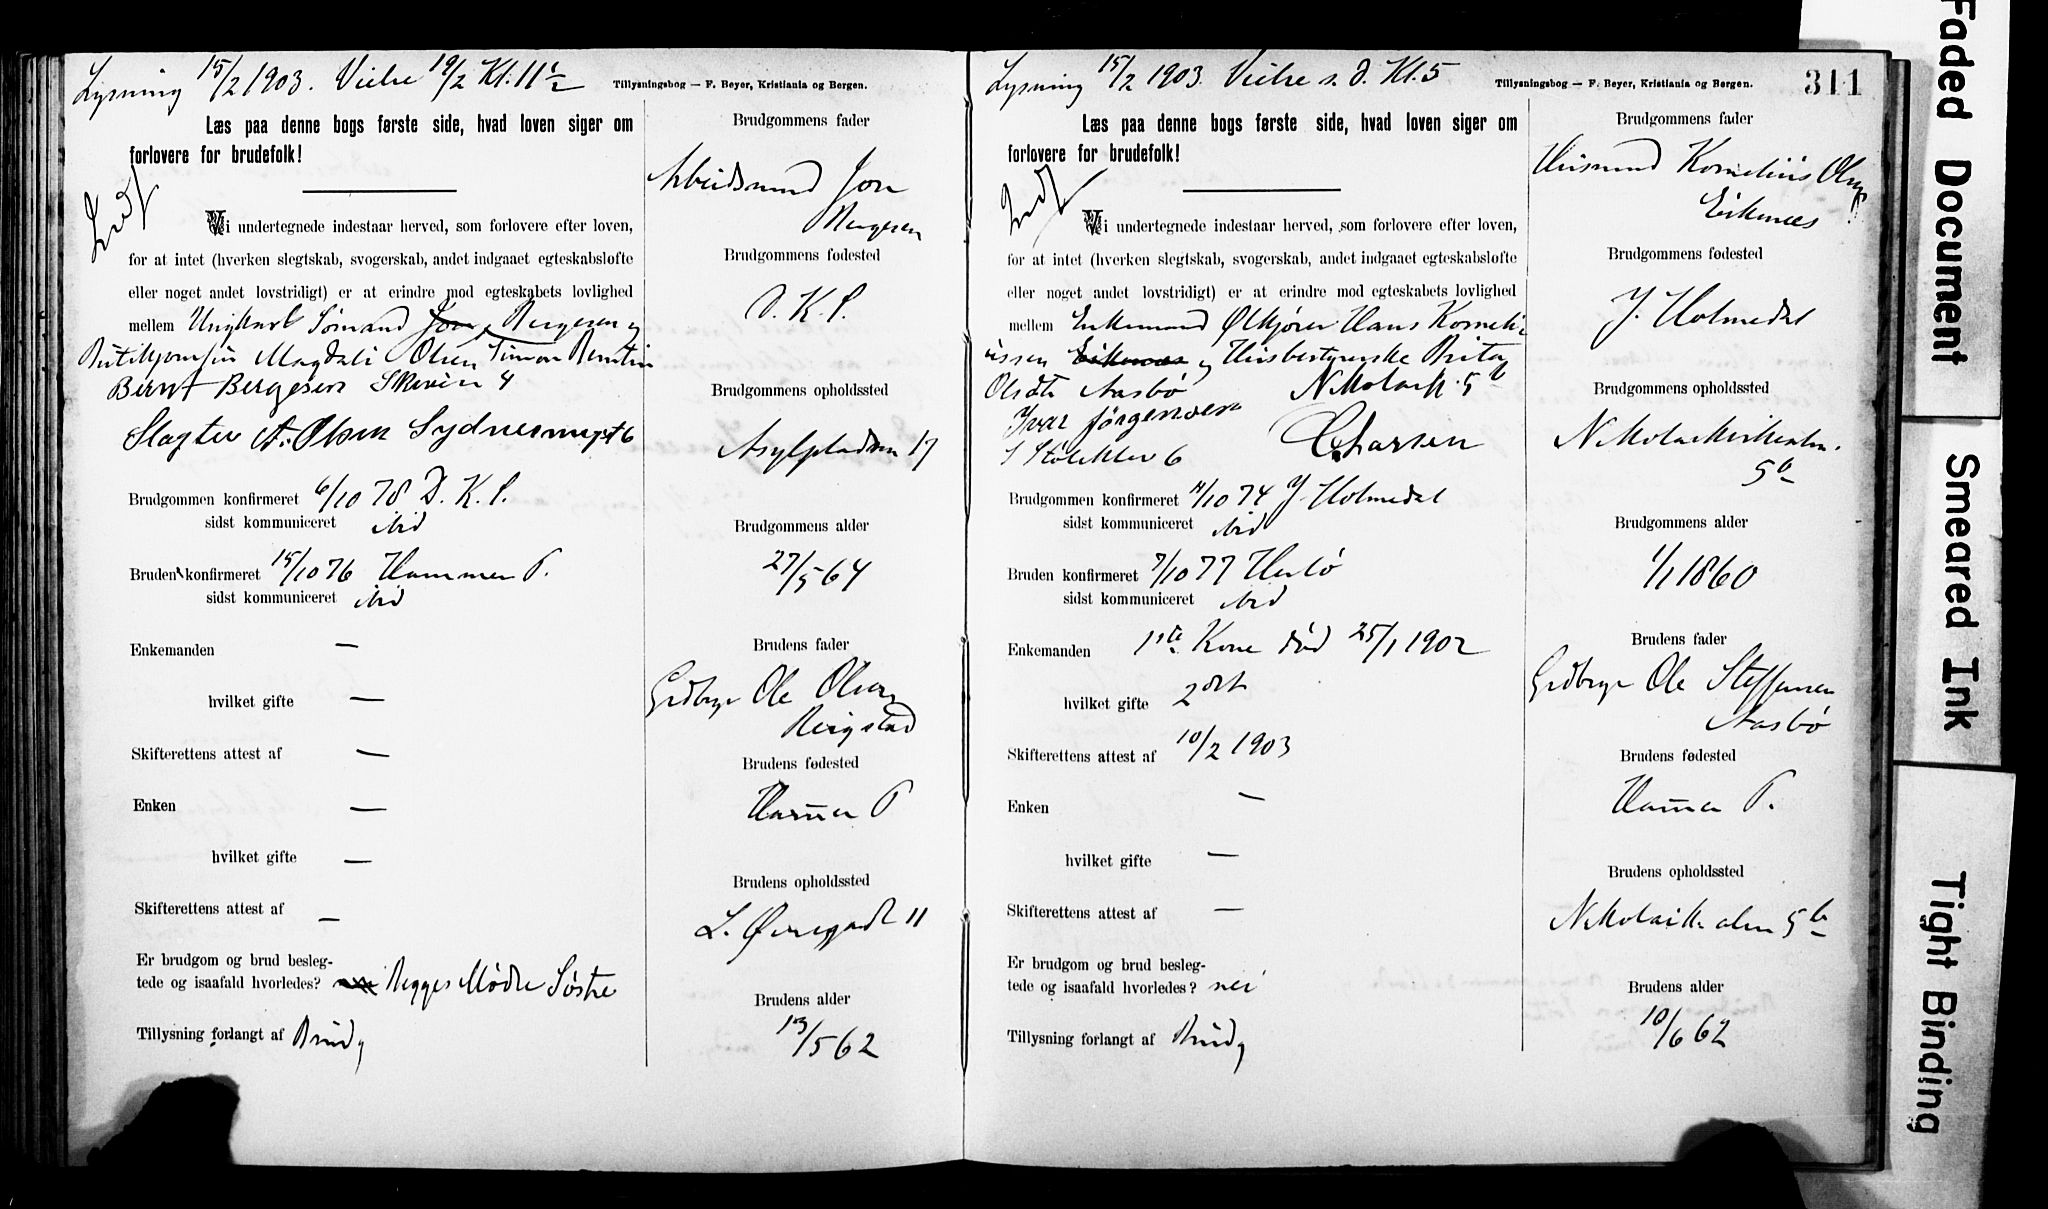 Lysning 15/2 1903. Vielse 19/2 Kl. 11½
Tillysningsbog — F. Beyer, Kristiania og Bergen.
Læs paa denne bogs første side, hvad loven siger om
forlovere for brudefolk!
Indf
Vi undertegnede indestaar herved, som forlovere efter loven,
for at intet (hverken slegtskab, svogerskab, andet indgaaet egteskabsløfte
eller noget andet lovstridigt) er at erindre mod egteskabets lovlighed
mellem Ungkarl Sømand Jon Bergesen og
Butikjomfru Magdali Olsen Simon Berntin
Bernt Bergesen Skiven 4
Slagter A. Olsen Sydnessmuget 6
Brudgommen konfirmeret 6/10 78 D. K. S.
sidst kommuniceret
Bruden konfirmeret 15/10 76 Hammer P.
sidst kommuniceret
Enkemanden —
hvilket gifte —
Skifterettens attest af —
Enken —
hvilket gifte —
Skifterettens attest af —
Er brudgom og brud besleg-
tede og isaafald hvorledes? Begges Mødre Søstre
Tillysning forlangt af Brudg
Brudgommens fader
Arbeidsmand Jon
Bergesen
Brudgommens fødested
D. K. S.
Brudgommens opholdssted
Asylpladsen 17
Brudgommens alder
27/5 64
Brudens fader
Grdbrgr Ole Olsen
Bergstad
Brudens fødested
Hammer P
Brudens opholdssted
L. Øvregade 11
Brudens alder
13/5 62
Lysning 15/2 1903. Vielse s. d. Kl. 5
Tillysningsbog — F. Beyer, Kristiania og Bergen.
311
Læs paa denne bogs første side, hvad loven siger om
forlovere for brudefolk!
Indf
Vi undertegnede indestaar herved, som forlovere efter loven,
for at intet (hverken slegtskab, svogerskab, andet indgaaet egteskabsløfte
eller noget andet lovstridigt) er at erindre mod egteskabets lovlighed
mellem Enkemand Ølkjører Hans Korneli-
ussen Eikenæs og Husbestyrerske Brita
Olsdtr Aasbø Nikolaik 5b
Ivar Jørgensen
S Stølekler 6 Larsen
Brudgommen konfirmeret 11/10 74 Y. Holmedal
sidst kommuniceret
Bruden konfirmeret 7/10 77 Herlø
sidst kommuniceret
Enkemanden 1ste Kone død 25/1 1902
hvilket gifte 2det
Skifterettens attest af 10/2 1903
Enken —
hvilket gifte —
Skifterettens attest af —
Er brudgom og brud besleg-
tede og isaafald hvorledes? nei
Tillysning forlangt af Brudg
Brudgommens fader
Husmand Kornelius Olsen
Eikenæs
Brudgommens fødested
Y. Holmedal
Brudgommens opholdssted
Nikolaikirkealm.
5b
Brudgommens alder
1/1 1860
Brudens fader
Grdbrgr Ole Steffensen
Aasbø
Brudens fødested
Hammer P.
Brudens opholdssted
Nikolaik. alm 5b
Brudens alder
10/6 62
Faded Document
Smeared Ink
Tight Binding